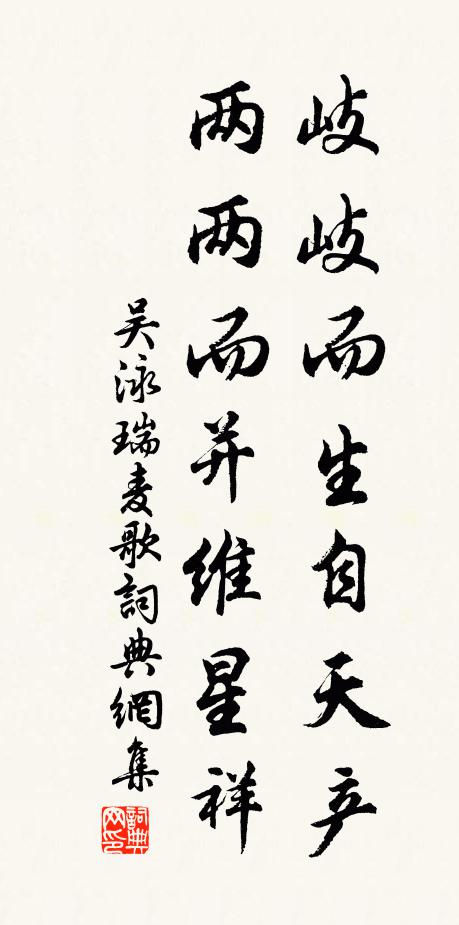 岐岐而生自天产
两两而并维星祥
吴泳瑞麦歌詞典網集
詞典网印